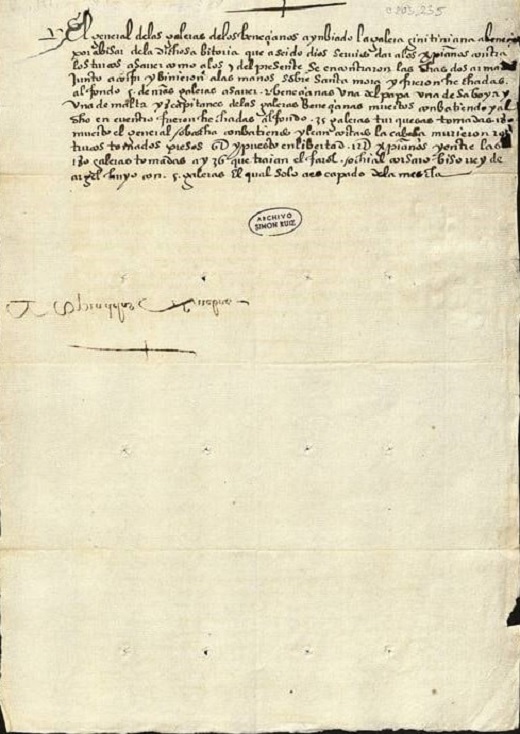 c 803, 235
El general de las galeras de los beneçianos a ynbiado la galera
por abisar de la dichosa bitoria que a seido dios servido dar a los xpianos contra
los turcos a saver como a los 7 del presente se encontraron las dichas dos armadas
junto a y binieron a las manos sobre santa mora y fueron hechadas
al fondo 5 de nras galeras a saver 2 beneçianas una del papa una de saboya y
una de malta y capitanes de las galeras beneçianas muertos conbatiendo y al
dho encuentro fueron hechadas al fondo 35 galeras turquesas tomadas 180
muerto el general conbatiendo y le an cortado la cabeça murieron
turcos tomados presos 6U y puesto en libertad 12U xpianos y entre las
180 galeras tomadas ay 36 que traian el farol corsaro biso rey de
argel huyo con 5 galeras el qual solo a escapado de la mescla
ARCHIVO
SIMON RUIZ